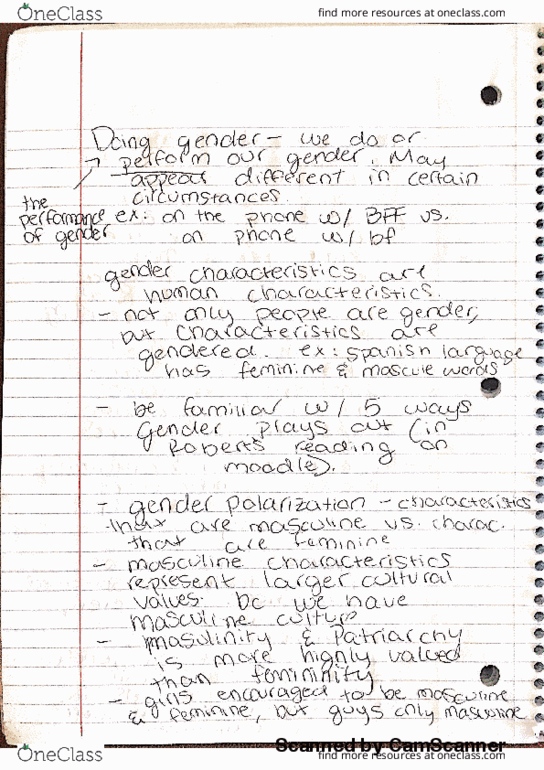 OneClass
find more resources at oneclass.com
Doing gender - we do or
→ perform our gender. May
appear different in certain
circumstances.
the
performance
of gender
ex: on the phone w/ BFF vs.
on phone w/ bf
gender characteristics are
human characteristics.
- not only people are gender,
but characteristics are
gendered. ex: spanish language
has feminine & mascule words
- be familiar w/ 5 ways
Gender plays out (in
Roberts reading on
moodle).
- gender polarization - characteristics
that are masculine vs. charac.
that are feminine
- masculine characteristics
represent larger cultural
values. bc we have
masculine culture
- masulinity & Patriarchy
is more highly valued
than femininity
- girls encouraged to be masculine
& feminine, but guys only masculine
Scanned by CamScanner
OneClass
find more resources at oneclass.com